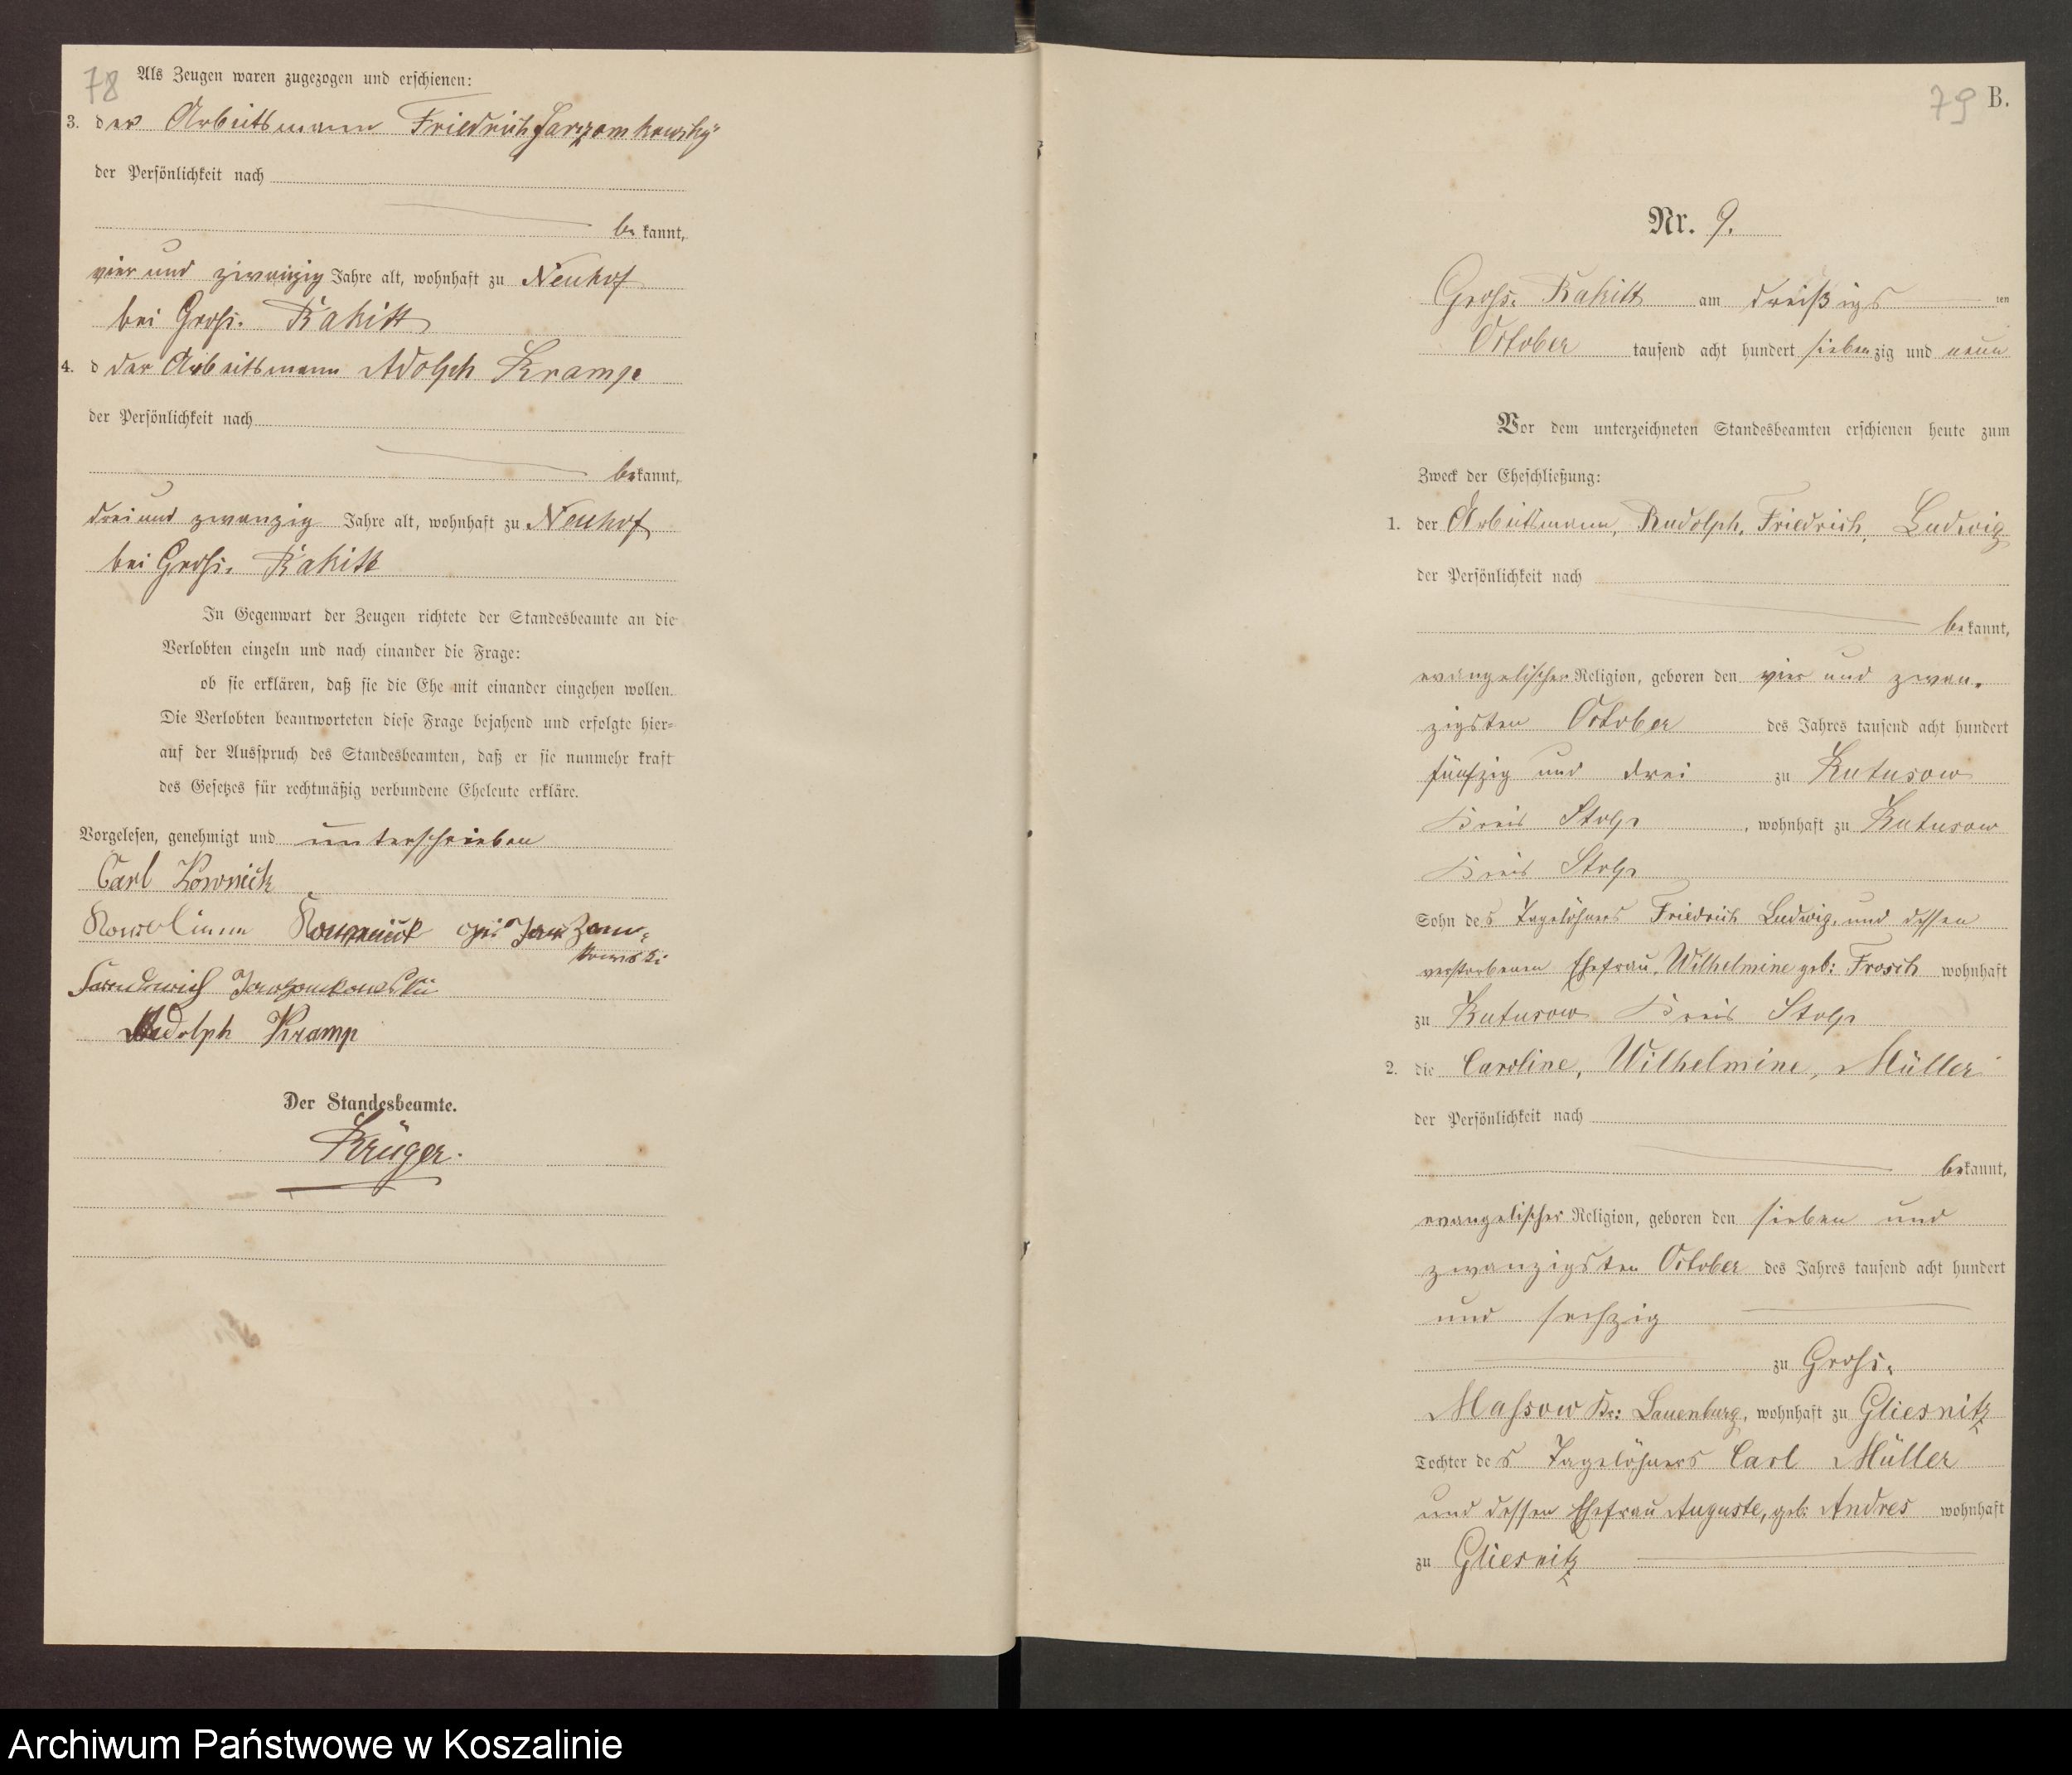 78
Als Zeugen waren zugezogen und erschienen:
3. der Arbeitsmann Friedrich Jarzomkowsky
der Persönlichkeit nach
be kannt,
vier und zwanzig Jahre alt, wohnhaft zu Neuhof
bei Gross. Rakitt
4. d der Arbeitsmann Adolph Kramp
der Persönlichkeit nach
bekannt,
drei und zwanzig Jahre alt, wohnhaft zu Neuhof
bei Gross. Rakitt
In Gegenwart der Zeugen richtete der Standesbeamte an die
Verlobten einzeln und nach einander die Frage:
ob sie erklären, daß sie die Ehe mit einander eingehen wollen.
Die Verlobten beantworteten diese Frage bejahend und erfolgte hier-
auf der Ausspruch des Standesbeamten, daß er sie nunmehr kraft
des Gesetzes für rechtmäßig verbundene Eheleute erkläre.
Vorgelesen, genehmigt und unterschrieben
Carl Kownick
Kownick
Adolph Kramp
Der Standesbeamte.
Krüger.
79 B.
Nr. 9.
Gross. Rakitt am dreißigs ten
October tausend acht hundert siebenzig und neun
Vor dem unterzeichneten Standesbeamten erschienen heute zum
Zweck der Eheschließung:
1. der Arbeitsmann, Rudolph, Friedrich, Ludwig
der Persönlichkeit nach
bekannt,
evangelischer Religion, geboren den vier und zwan-
zigsten October des Jahres tausend acht hundert
fünfzig und drei zu Rutusow
Kreis Stolp, wohnhaft zu Rutusow
Kreis Stolp
Sohn des Tagelöhners Friedrich Ludwig, und dessen
verstorbenen Ehefrau, Wilhelmine geb: Frosch wohnhaft
zu Rutusow Kreis Stolp
2. die Caroline, Wilhelmine, Müller
der Persönlichkeit nach
bekannt,
evangelischer Religion, geboren den sieben und
zwanzigsten October des Jahres tausend acht hundert
und sechzig
zu Gross.
Massow Kr: Lauenburg, wohnhaft zu Gliesnitz
Tochter des Tagelöhners Carl Müller
und dessen Ehefrau Auguste, geb: Andres wohnhaft
zu Gliesnitz
Archiwum Państwowe w Koszalinie